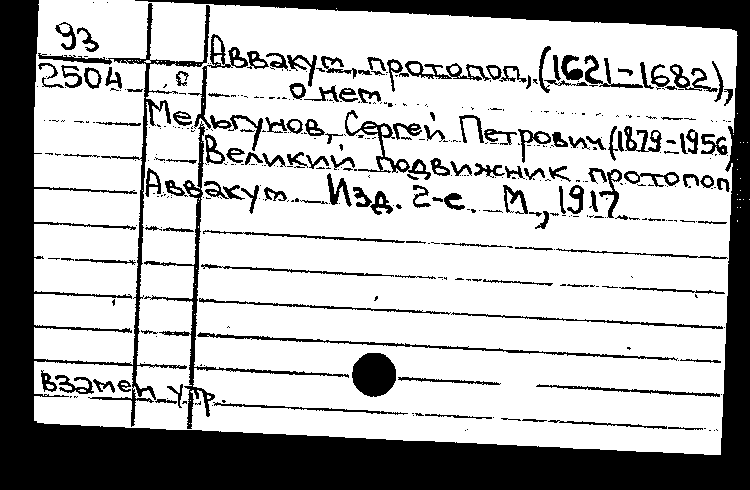 93
Аввакум, протопоп, (1621-1682),
2504 о
о нем.
Мельгунов, Сергей Петрович (1879-1956)
Великий подвижник протопоп
Аввакум. Изд. 2-е. М., 1917.
взамен утр.